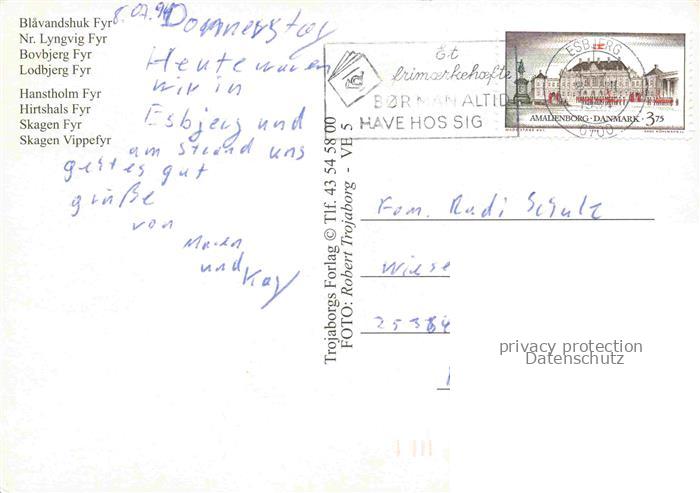 Blåvandshuk Fyr
Nr. Lyngvig Fyr
Bovbjerg Fyr
Lodbjerg Fyr
Hanstholm Fyr
Hirtshals Fyr
Skagen Fyr
Skagen Vippefyr
8.07.94 Donnerstag
Heute waren
wir in
Esbjerg und
am Strand uns
gettes gut
grüße
von
Maren
und Kay
Trojaborgs Forlag © Tlf. 43 54 58 00
FOTO: Robert Trojaborg - VE 5
Et
frimærkehæfte
BØR MAN ALTID
HAVE HOS SIG
ESBJERG
6700
AMALIENBORG · DANMARK 3.75
Fam. Rudi Schulz
Wiese
privacy protection
Datenschutz